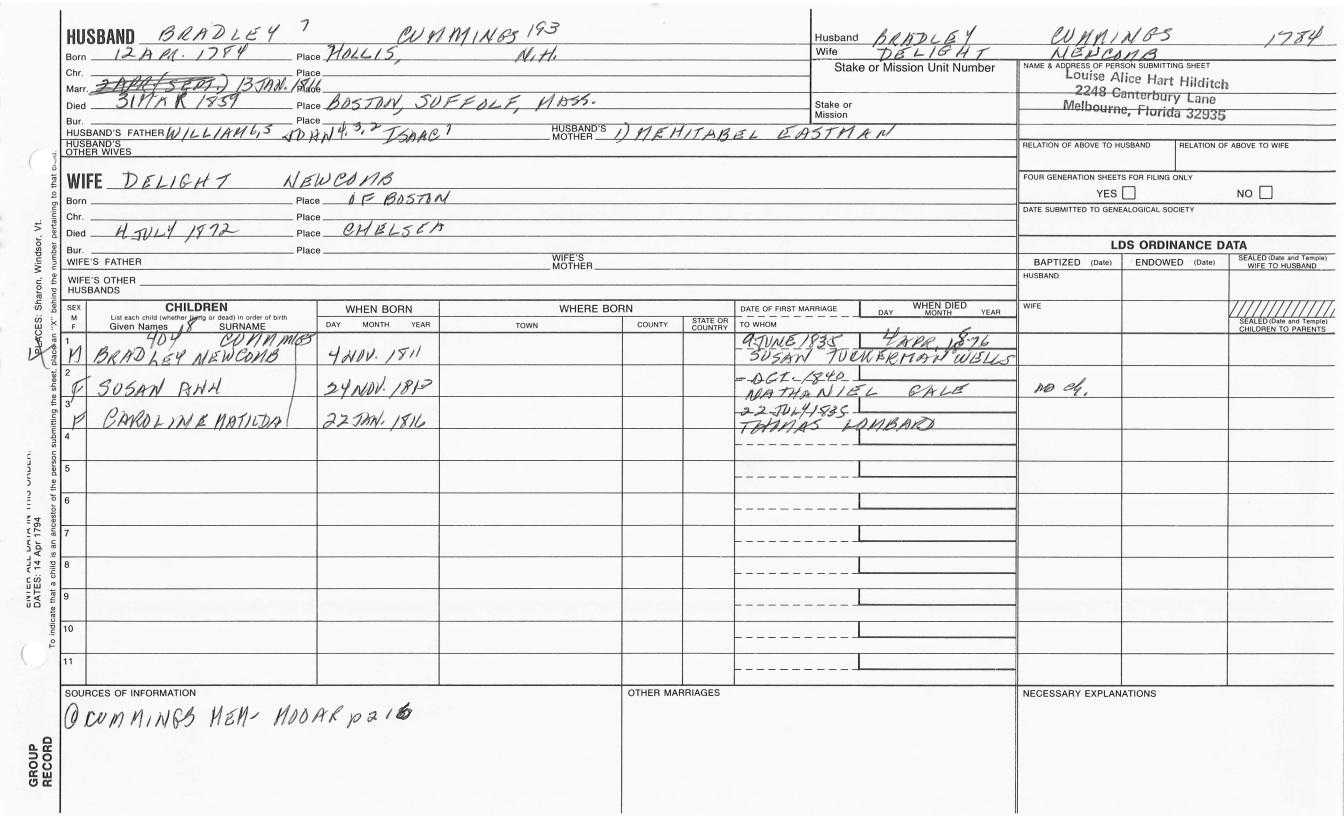 HUSBAND BRADLEY 7 CUMMINGS 193
Born 12 APR. 1784 Place HOLLIS, N.H.
Chr. Place
Marr. 2 APR (SEPT.) 13 JAN. 1816 Place
Died 31 MAR 1859 Place BOSTON, SUFFOLF, MASS.
Bur. Place
HUSBAND'S FATHER WILLIAM 6,5 JOHN 4,3,2 ISAAC 1 HUSBAND'S MOTHER 1) MEHITABEL EASTMAN
HUSBAND'S OTHER WIVES
WIFE DELIGHT NEWCOMB
Born Place OF BOSTON
Chr. Place
Died 4 JULY 1872 Place CHELSEA
Bur. Place
WIFE'S FATHER WIFE'S MOTHER
WIFE'S OTHER HUSBANDS
Husband BRADLEY CUMMINGS 1784
Wife DELIGHT NEWCOMB
Stake or Mission Unit Number
Stake or Mission
NAME & ADDRESS OF PERSON SUBMITTING SHEET
Louise Alice Hart Hilditch
2248 Canterbury Lane
Melbourne, Florida 32935
RELATION OF ABOVE TO HUSBAND RELATION OF ABOVE TO WIFE
FOUR GENERATION SHEETS FOR FILING ONLY
YES NO
DATE SUBMITTED TO GENEALOGICAL SOCIETY
LDS ORDINANCE DATA
BAPTIZED (Date) ENDOWED (Date) SEALED (Date and Temple) WIFE TO HUSBAND
HUSBAND
WIFE
SEALED (Date and Temple) CHILDREN TO PARENTS
SEX M F
CHILDREN
List each child (whether living or dead) in order of birth
Given Names SURNAME
WHEN BORN
DAY MONTH YEAR
WHERE BORN
TOWN COUNTY STATE OR COUNTRY
DATE OF FIRST MARRIAGE
TO WHOM
WHEN DIED
DAY MONTH YEAR
1 404 18 CUMMINGS 9 JUNE 1835 4 APR. 1876
M BRADLEY NEWCOMB 4 NOV. 1811 SUSAN TUCKERMAN WELLS
2 - OCT. 1840
F SUSAN ANN 24 NOV. 1813 NATHANIEL GALE no ch.
3 22 JULY 1835
F CAROLINE MATILDA 22 JAN. 1816 THOMAS LOMBARD
4
5
6
7
8
9
10
11
SOURCES OF INFORMATION
① CUMMINGS MEM- MOOAR p 216
OTHER MARRIAGES
NECESSARY EXPLANATIONS
PLACES: Sharon, Windsor, Vt.
ENTER ALL DATA IN THIS ORDER:
DATES: 14 Apr 1794
To indicate that a child is an ancestor of the person submitting the sheet, place an "X" behind the number pertaining to that
GROUP RECORD